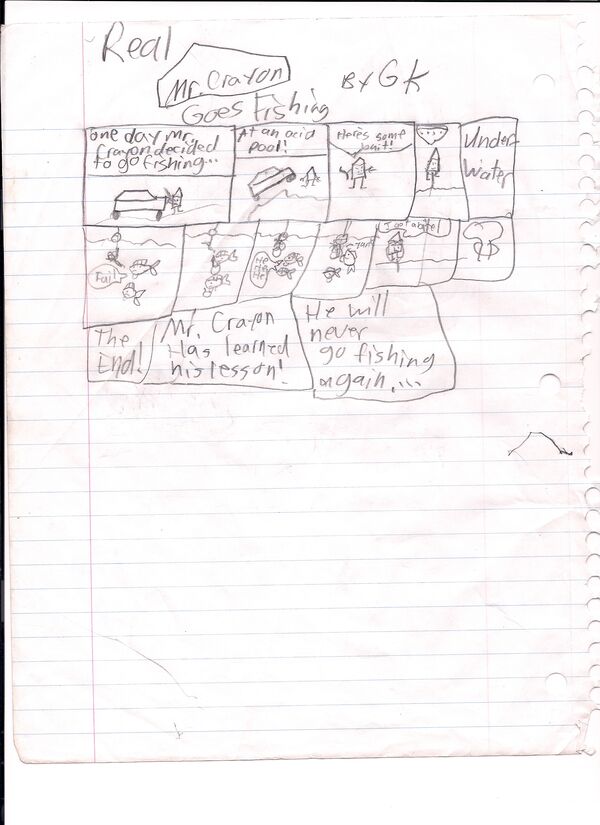 Real
Mr. Crayon
By GK
Goes fishing
One day Mr.
Crayon decided
to go fishing...
At an acid
pool!
Heres some
bait!
Under
Water
Fail
I got a bite!
The
End!
Mr. Crayon
Has learned
his lesson!
He will
never
go fishing
again....